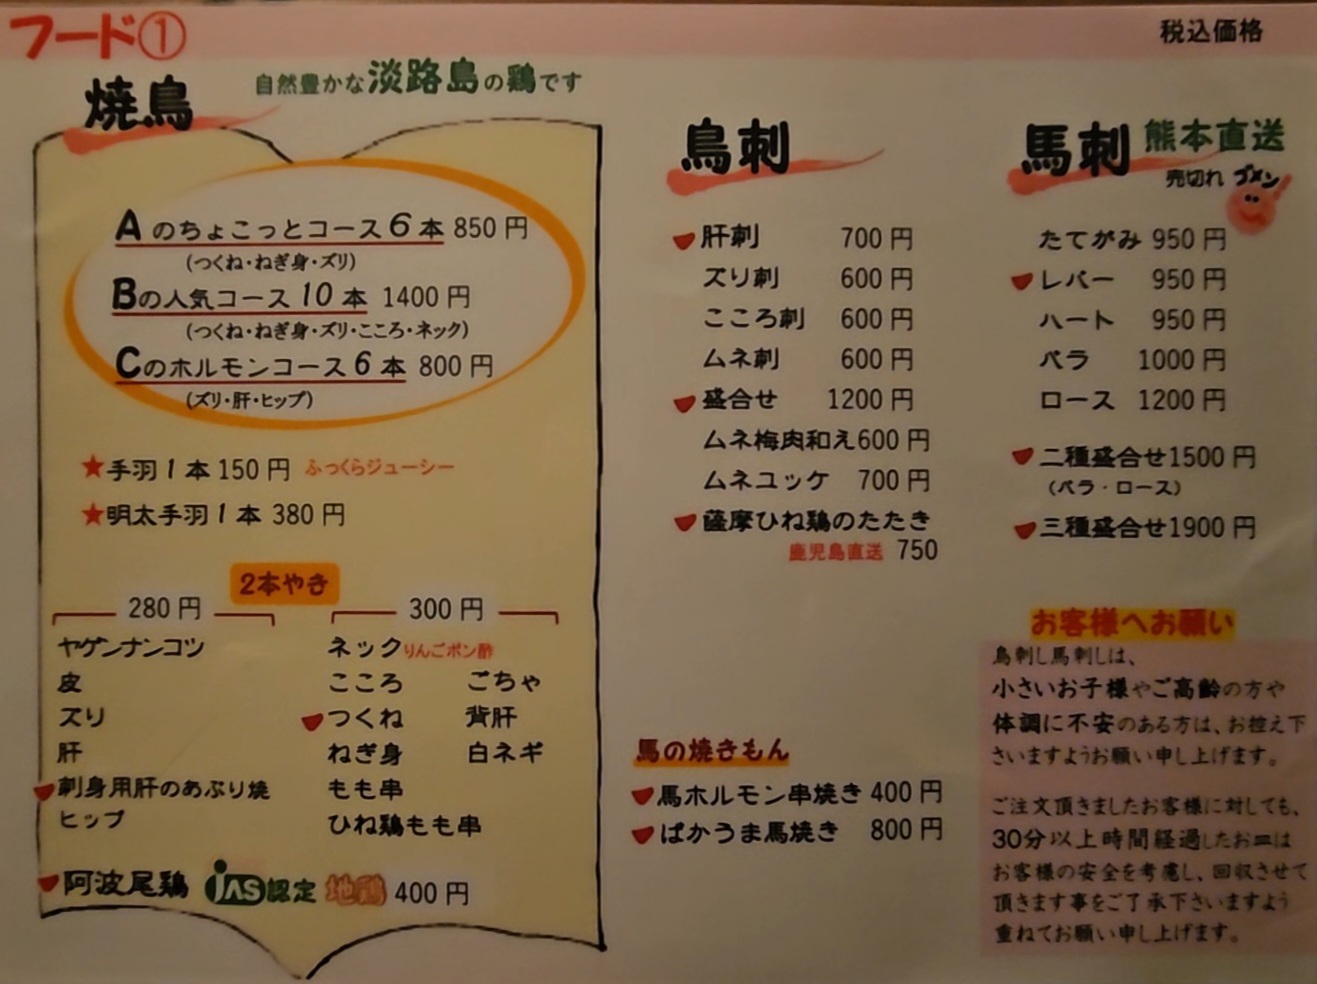 フード①
税込価格
焼鳥
自然豊かな淡路島の鶏です
Aのちょこっとコース6本 850円
(つくね・ねぎ身・ズリ)
Bの人気コース10本 1400円
(つくね・ねぎ身・ズリ・こころ・ネック)
Cのホルモンコース6本 800円
(ズリ・肝・ヒップ)
★手羽1本 150円 ふっくらジューシー
★明太手羽1本 380円
2本やき
280円
ヤゲンナンコツ
皮
ズリ
肝
刺身用肝のあぶり焼
ヒップ
300円
ネック りんごポン酢
こころ ごちゃ
つくね 背肝
ねぎ身 白ネギ
もも串
ひね鶏もも串
阿波尾鶏 JAS認定 地鶏 400円
鳥刺
肝刺 700円
ズリ刺 600円
こころ刺 600円
ムネ刺 600円
盛合せ 1200円
ムネ梅肉和え600円
ムネユッケ 700円
薩摩ひね鶏のたたき
鹿児島直送 750
馬の焼きもん
馬ホルモン串焼き 400円
ばかうま馬焼き 800円
馬刺 熊本直送
売切れ ゴメン
たてがみ 950円
レバー 950円
ハート 950円
バラ 1000円
ロース 1200円
二種盛合せ1500円
(バラ・ロース)
三種盛合せ1900円
お客様へお願い
鳥刺し馬刺しは、
小さいお子様やご高齢の方や
体調に不安のある方は、お控え下
さいますようお願い申し上げます。
ご注文頂きましたお客様に対しても、
30分以上時間経過したお皿は
お客様の安全を考慮し、回収させて
頂きます事をご了承下さいますよう
重ねてお願い申し上げます。